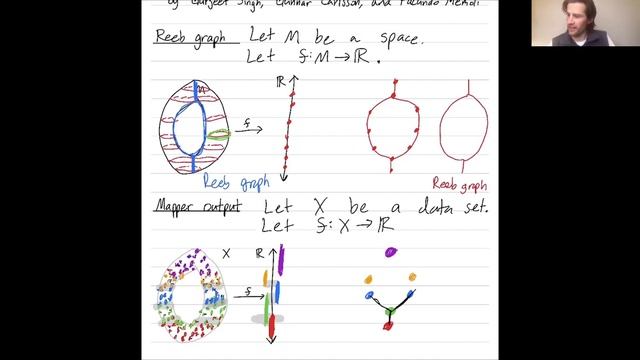 by Gurjeet Singh, Gunnar Carlsson, and Facundo Mémoli
Reeb graph Let M be a space.
Let f: M → ℝ.
M
ℝ
f
Reeb graph
Reeb graph
Mapper output Let X be a data set.
Let f: X → ℝ
X
ℝ
f